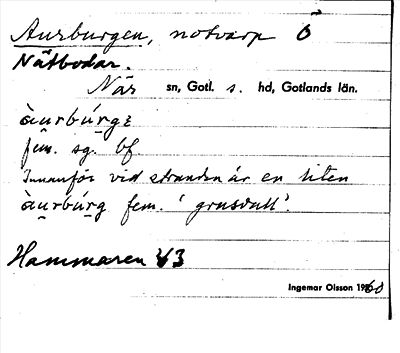 Aurburgen, notvarp Ö
Nätbodar.
När sn, Gotl. s. hd, Gotlands län.
àu̯rbúrgɛ
fem. sg. bf.
Innanför vid stranden är en liten
àu̯rbúrg fem. 'grusvall'.
Hammaren 63
Ingemar Olsson 1960